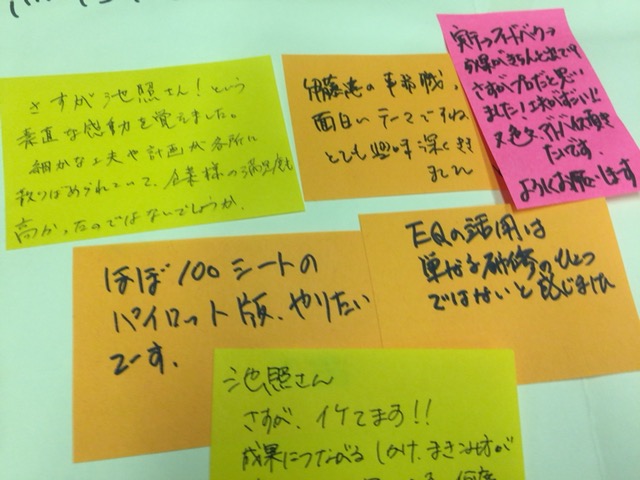 さすが池照さん！という
素直な感動を覚えました。
細かな工夫や計画が各所に
秋りばめられていて、企業様の満足度も
高かったのではないでしょうか。
面白いテーマですね
とても興味深くきき
ました
実行→フィードバック→
さすがプロだと思い
ました！
たいです。
よろしくお願いします
ほぼ100シートの
パイロット版、やりたい
でーす。
EQの活用は
単なる研修のひとつ
ではないと感じました
池照さん
さすが、イケてます!!
成果につながるしかけ、まきこみ方が